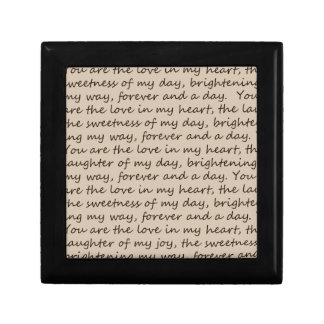 You are the love in my heart, th
sweetness of my day, brightening
my way, forever and a day. You
are the love in my heart, the lau
the sweetness of my day, brighten
ing my way, forever and a day.
You are the love in my heart, th
laughter of my day, brightening
my way, forever and a day. You
are the love in my heart, the lau
the sweetness of my day, brighten
ing my way, forever and a day.
You are the love in my heart, th
laughter of my joy, the sweetness
brightening my way, forever and